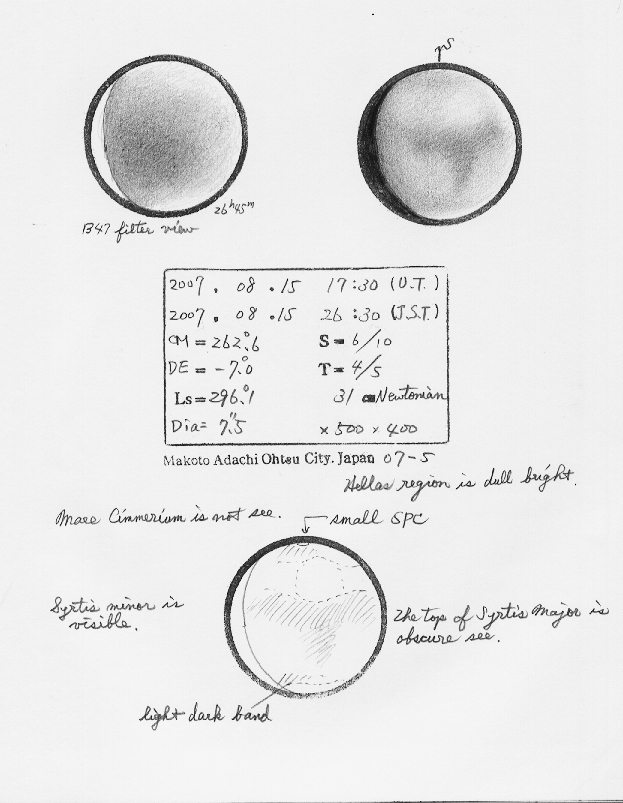 S
26h45m
B47 filter view
2007. 08.15 17:30 (U.T.)
2007. 08.15 26:30 (J.S.T.)
CM = 262.°6 S = 6/10
DE = -7.°0 T = 4/5
Ls = 296.°1 31 cm Newtonian
Dia = 7."5 × 500 × 400
Makoto Adachi Ohtsu City. Japan 07-5
Hellas region is dull bright.
Mare Cimmerium is not see.
small SPC
Syrtis minor is
visible.
The top of Syrtis Major is
obscure see.
light dark band